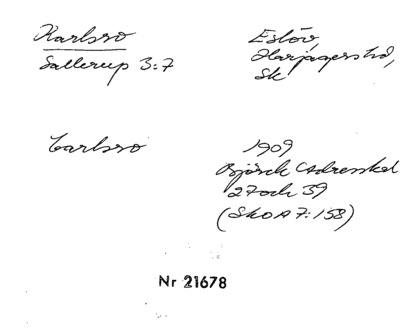 Karlsro
Sallerup 3:7
Eslöv,
Harjagers hd,
Sk
Carlsro
1909
Björck Adresskal
27 och 39
(SkOA 7:158)
Nr 21678